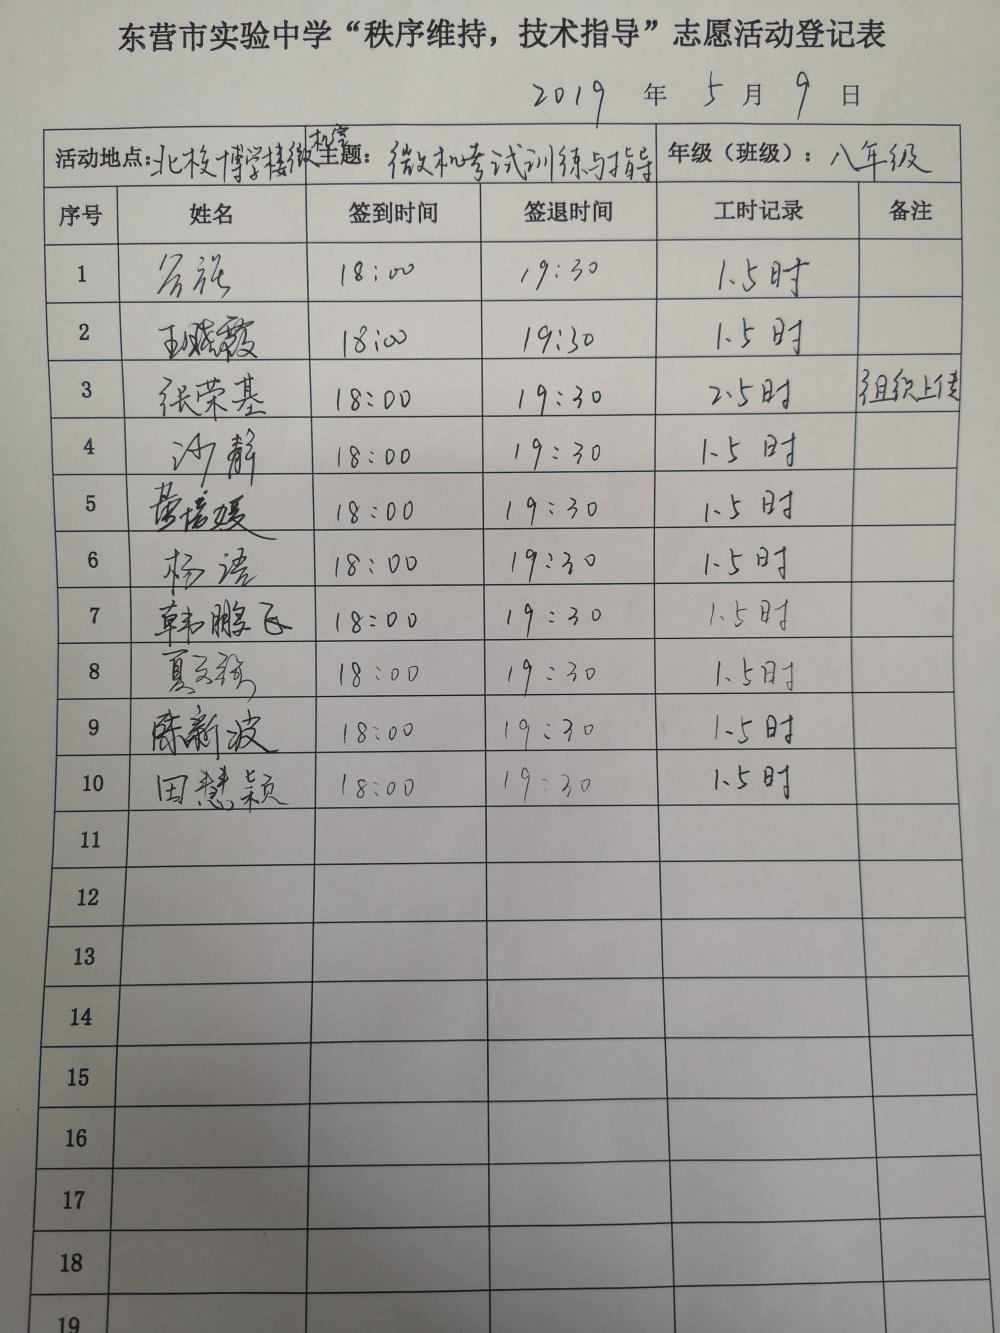 东营市实验中学“秩序维持，技术指导”志愿活动登记表
2019 年 5 月 9 日
活动地点：北校博学楼微机室 主题：微机考试训练与指导 年级（班级）：八年级
序号 姓名 签到时间 签退时间 工时记录 备注
1 18:00 19:30 1.5时
2 王晓霞 18:00 19:30 1.5时
3 张荣基 18:00 19:30 2.5时 组织上传
4 沙静 18:00 19:30 1.5时
5 18:00 19:30 1.5时
6 杨语 18:00 19:30 1.5时
7 韩鹏飞 18:00 19:30 1.5时
8 夏文 18:00 19:30 1.5时
9 陈新波 18:00 19:30 1.5时
10 田慧颖 18:00 19:30 1.5时
11
12
13
14
15
16
17
18
19